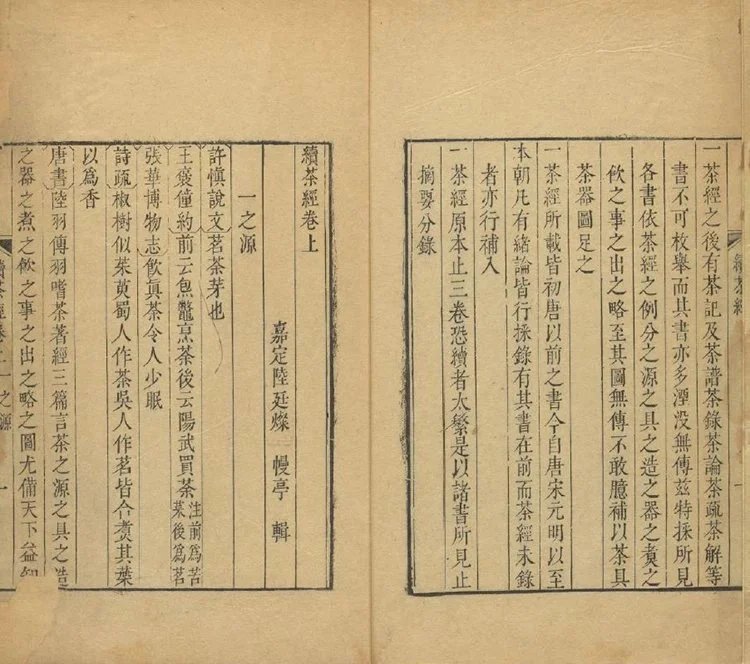 一茶經之後有茶記及茶譜茶錄茶論茶疏茶解等
書不可枚舉而其書亦多湮没無傳茲特採所見
各書依茶經之例分之源之具之造之器之煑之
飲之事之出之略至其圖無傳不敢臆補以茶具
茶器圖足之
一茶經所載皆初唐以前之書今自唐宋元明以至
本朝凡有緒論皆行採錄有其書在前而茶經未錄
者亦行補入
一茶經原本止三卷恐續者太繁是以諸書所見止
摘要分錄
續茶經卷上
嘉定陸廷燦 幔亭 輯
一之源
許慎說文茗茶芽也
王褒僮約前云炰鼈烹茶後云陽武買茶注前為苦菜後為茗
張華博物志飲真茶令人少眠
詩疏椒樹似茱萸蜀人作茶吳人作茗皆合煑其葉
以為香
唐書陸羽傳羽嗜茶著經三篇言茶之源之具之造
之器之煮之飲之事之出之略之圖尤備天下益知
續茶經
續茶經卷上 一之源 一